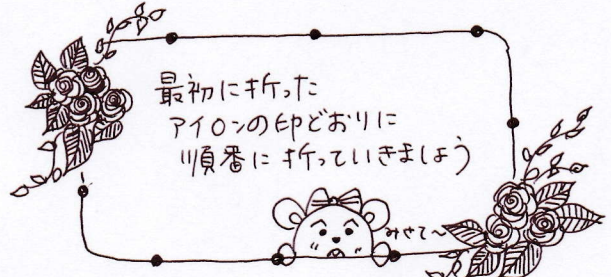 最初に折った
アイロンの印どおりに
順番に折っていきましょう
みせて〜